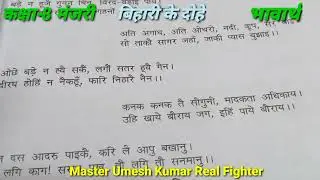 कक्षा-8 मंजरी बिहारी के दोहे भावार्थ
बड़े न हूजै गुनन बिनु, बिरद-बड़ाई पाय।
अति अगाध, अति औथरो, नदी, कूप, सर
सो ताको सागर जहाँ, जाकी प्यास बुझाइ।।
ओछे बड़े न ह्वै सकैं, लगौ सतर ह्वै गैन।
दीरघ होहिं न नैकहूँ, फारि निहारै नैन।।
कनक कनक तै सौगुनी, मादकता अधिकाय।
उहि खाये बौराय जग, इहिं पाये बौराय।।
दस आदरु पाइकै, करि लै आपु बखानु।
लगि काग! लगि तौ सनमानु।।
Master Umesh Kumar Real Fighter